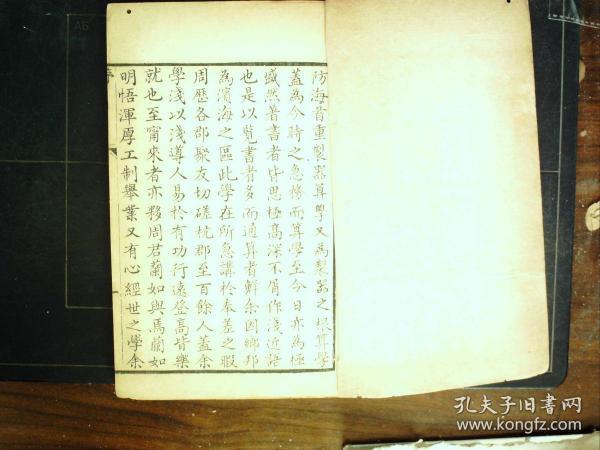 防海首重製器算學又為製器之根算學
蓋為今時之急務而算學至今日亦為極
盛然著書者皆思極高深不屑作淺近語
也是以覽書者多而通算者鮮余因鄉邦
為濱海之區此學在所急講於奉差之暇
周歷各郡聚友切磋杭郡至百餘人蓋余
學淺以淺導人易於有功行遠登高皆樂
就也至甯來者亦夥周君蘭如與焉蘭如
明悟渾厚工制舉業又有心經世之學余
序
孔夫子旧书网
www.kongfz.com
A5